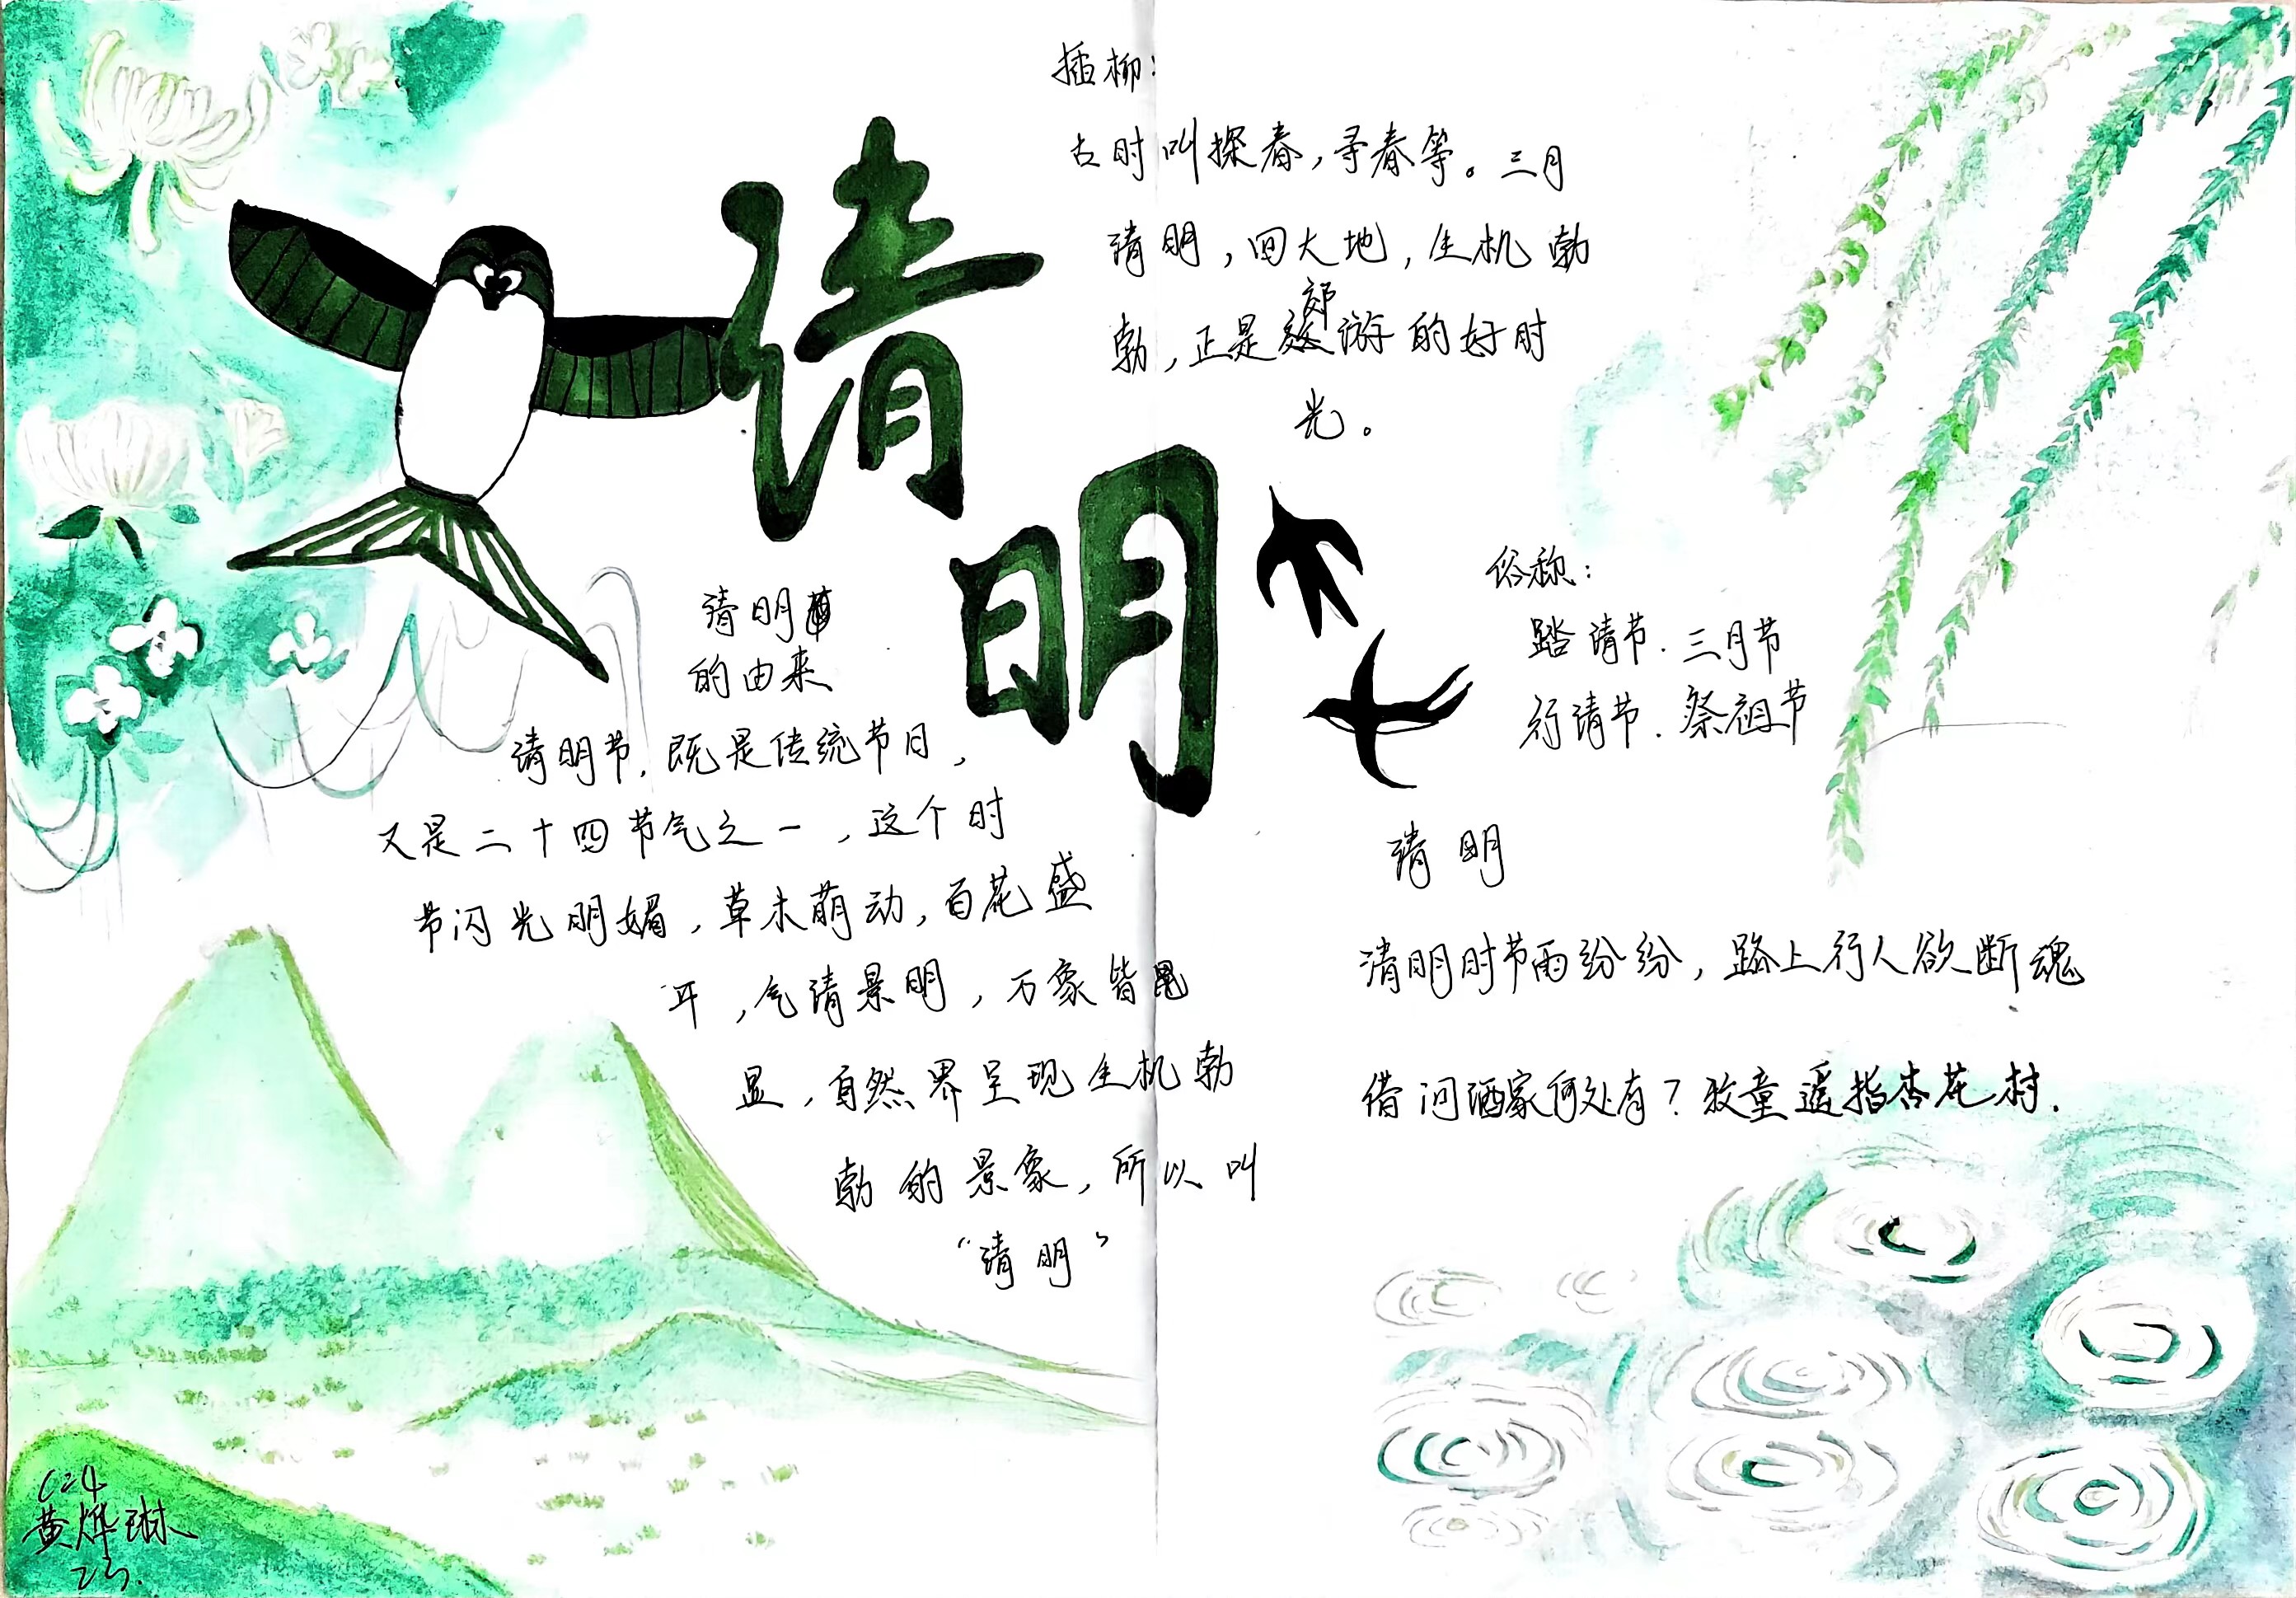 清
明
插柳：
古时叫探春，寻春等。三月
清明，回大地，生机勃
郊
勃，正是游的好时
光。
俗称：
踏请节.三月节
行请节.祭祖节
清明
的由来
请明节，既是传统节日，
又是二十四节气之一，这个时
节闪光明媚，草木萌动，百花盛
开，气请景明，万象皆
显，自然界呈现生机勃
勃的景象，所以叫
“请明”
清明
清明时节雨纷纷，路上行人欲断魂
借问酒家何处有？牧童遥指杏花村.
黄烨琳
23.